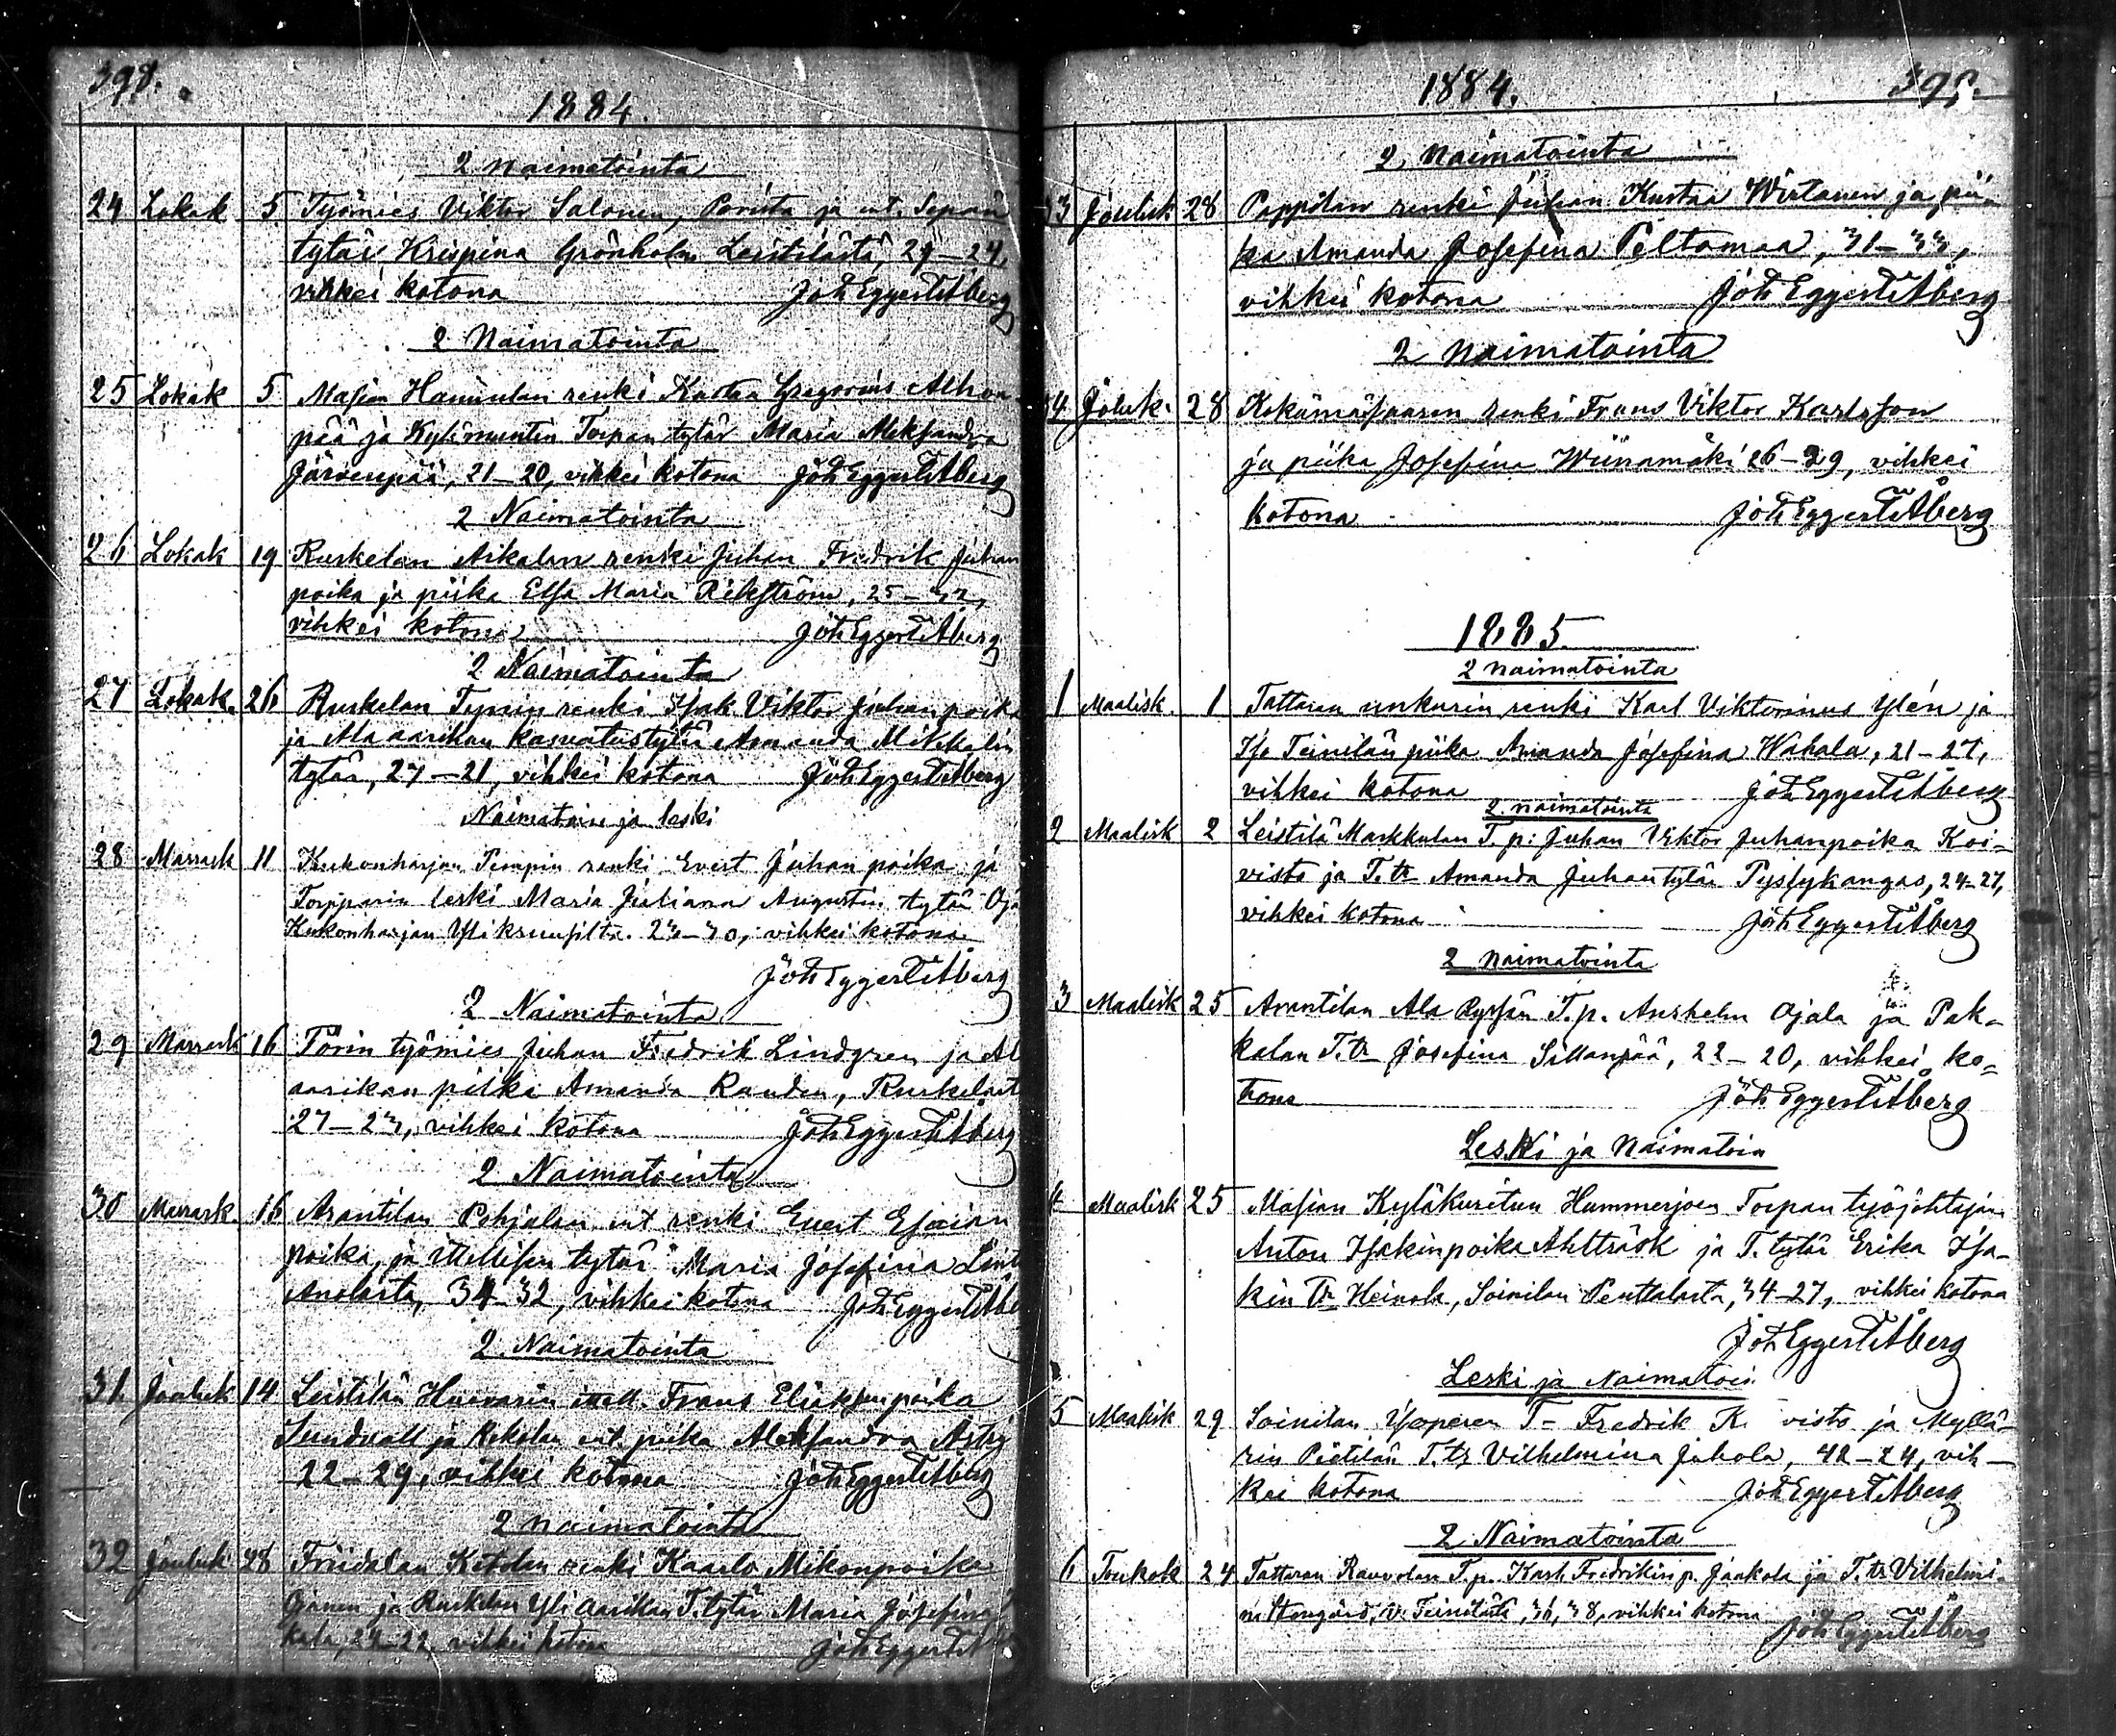 398.
1884.
2 naimatointa
24 Lokak 5 Työmies Viktor Salonen, Porista ja ent. Sepän
tytär Krispina Grönholm Leistilästä, 29–24,
vihkei kotona Joh Eggert Åberg
2 Naimatointa
25 Lokak 5 Masian Hannulan renki Kustaa Gregorius Alhon
pää ja Torpan tytär Maria Aleksandra
Järvenpää, 21–20, vihkei kotona Joh Eggert Åberg
2 Naimatointa
26 Lokak 19 Ruskelan Aikalan renki Juhan Fredrik Juhan
poika ja piika Elsa Maria 25–32,
vihkei kotona Joh Eggert Åberg
2 Naimatointa
27 Lokak. 26 Ruskelan renki Isak Viktor Juhanpoika
ja Ala aarikan kasvatustytär Amanda Mikkelin
tytär, 27–21, vihkei kotona Joh Eggert Åberg
Naimatoin ja leski
28 Marrask 11 Kukonharjan renki Evert Juhan poika ja
Torpparin leski Maria Juliana Augustin tytär Oja
Kukonharjan 23–30, vihkei kotona
Joh Eggert Åberg
2 Naimatointa
29 Marrask 16 Törin työmies Juhan Fredrik Lindgren ja Al
aarikan piika Amanda Randen, Ruskelast
27–23, vihkei kotona Joh Eggert Åberg
2 Naimatointa
30 Marrask. 16 Arantilan Pohjalan ent renki Evert Esaian
poika, ja ittellisen tytär Maria Josefina Lint
Anolasta, 34–32, vihkei kotona Joh Eggert Åbe
2 Naimatointa
31. Jouluk 14 Leistilän Huovarin ittell. Frans Eliaksenpoika
Sundvall ja ent. piika Aleksandra
22–29, vihkei kotona Joh Eggert Åberg
2 naimatointa
32 Jouluk 28 Friidalan Ketolan renki Kaarlo Mikonpoika
Ojanen ja Ruskelan Yli aarikan T. tytär Maria Josefina
22–22, vihkei kotona Joh Eggert
1884. 399.
2 Naimatointa
33 Jouluk 28 Pappilan renki Juhan Kustaa Wirtanen ja pii-
ka Amanda Josefina Peltomaa, 31–33,
vihkei kotona Joh Eggert Åberg
2 Naimatointa
34 Jouluk. 28 Kokämäsaaren renki Frans Viktor Karlsson
ja piika Josefina Wiinamäki 26–29, vihkei
kotona Joh Eggert Åberg
1885.
2 naimatointa
1 Maalisk. 1 Tattaran unkurin renki Karl Viktorinus Ylén ja
Iso Teinilän piika Amanda Josefina Wahala, 21–27,
vihkei kotona Joh Eggert Åberg
2 naimatointa
2 Maalisk 2 Leistilä Markkulan T. p: Juhan Viktor Juhanpoika Koi-
visto ja T. tr Amanda Juhantytär Pyssykangas, 24–27,
vihkei kotona Joh Eggert Åberg
2 naimatointa
3 Maalisk 25 Arantilan Ala Pyssän T. p. Anshelm Ojala ja Pak-
kalan T. tr Josefina Sillanpää, 22–20, vihkei ko-
tona Joh Eggert Åberg
Leski ja Naimatoin
4 Maalisk 25 Masian Kyläkuritun Hammerjoen Torpan työjohtajan
Anton Isakinpoika Ahlträsk ja T. tytär Erika Isa-
kin Tr Heinola, Soinilan Penttalasta, 34–27, vihkei kotona
Joh Eggert Åberg
Leski ja Naimatoi
5 Maalisk 29 Soinilan T– Fredrik K visto ja Myllä-
rin Pietilän T. tr Vilhelmina Jahola, 42–24, vih-
kei kotona Joh Eggert Åberg
2 Naimatointa
6 Toukok 24 Tattaran Rauvolan T. p. Karl Fredrikin p. Jaakola ja T. tr Vilhelmi-
na Stengård, V. Teinilästä, 36, 38, vihkei kotona
Joh Eggert Åberg